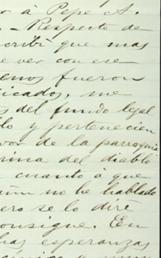 o à Pepe A.
Respecto de
cribí que mas
e ver con ese
enos fueron
icados, me
s del fundo legal
lo y pertenecien
vor de la parroquia
rina del diablo
cuanto á que
no he hablado
ero se lo diré
onsigne. En
has esperanzas